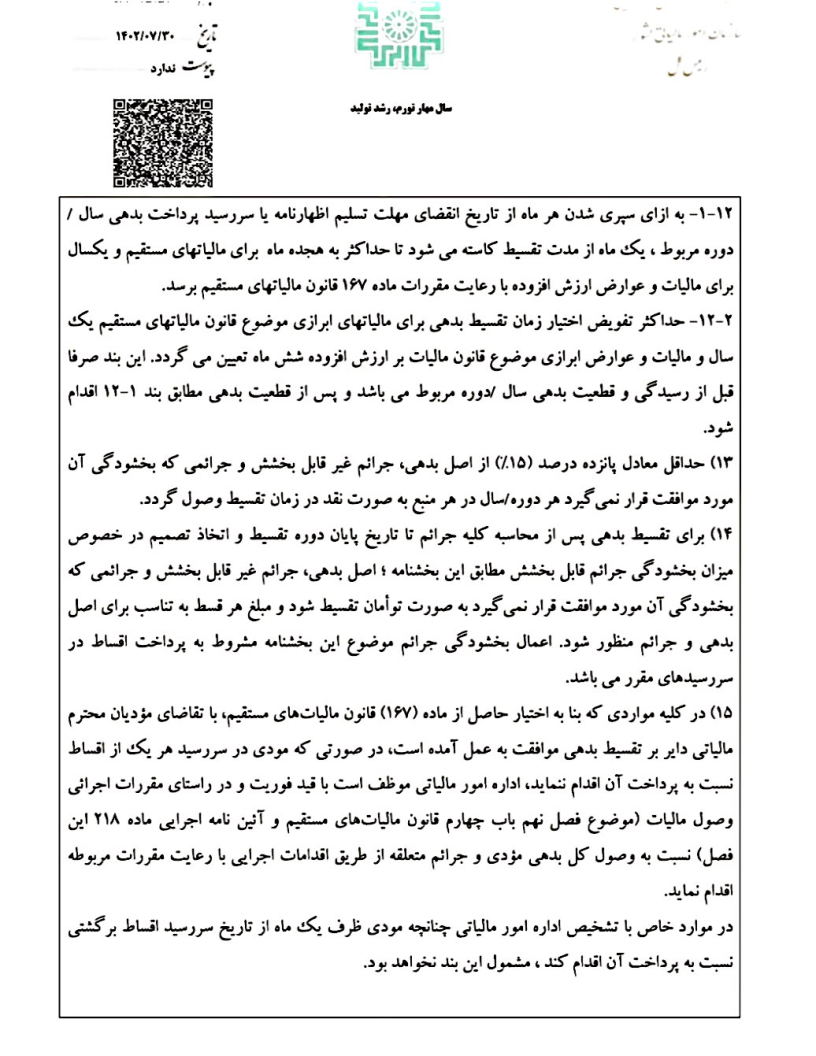 تاریخ ۱۴۰۲/۰۷/۳۰
پیوست ندارد
سال مهار تورم، رشد تولید
۱۲-۱- به ازای سپری شدن هر ماه از تاریخ انقضای مهلت تسلیم اظهارنامه یا سررسید پرداخت بدهی سال /
دوره مربوط ، یک ماه از مدت تقسیط کاسته می شود تا حداکثر به هجده ماه برای مالیاتهای مستقیم و یکسال
برای مالیات و عوارض ارزش افزوده با رعایت مقررات ماده ۱۶۷ قانون مالیاتهای مستقیم برسد.
۱۲-۲- حداکثر تفویض اختیار زمان تقسیط بدهی برای مالیاتهای ابرازی موضوع قانون مالیاتهای مستقیم یک
سال و مالیات و عوارض ابرازی موضوع قانون مالیات بر ارزش افزوده شش ماه تعیین می گردد. این بند صرفا
قبل از رسیدگی و قطعیت بدهی سال /دوره مربوط می باشد و پس از قطعیت بدهی مطابق بند ۱-۱۲ اقدام
شود.
۱۳) حداقل معادل پانزده درصد (۱۵٪) از اصل بدهی، جرائم غیر قابل بخشش و جرائمی که بخشودگی آن
مورد موافقت قرار نمی‌گیرد هر دوره/سال در هر منبع به صورت نقد در زمان تقسیط وصول گردد.
۱۴) برای تقسیط بدهی پس از محاسبه کلیه جرائم تا تاریخ پایان دوره تقسیط و اتخاذ تصمیم در خصوص
میزان بخشودگی جرائم قابل بخشش مطابق این بخشنامه ؛ اصل بدهی، جرائم غیر قابل بخشش و جرائمی که
بخشودگی آن مورد موافقت قرار نمی‌گیرد به صورت توأمان تقسیط شود و مبلغ هر قسط به تناسب برای اصل
بدهی و جرائم منظور شود. اعمال بخشودگی جرائم موضوع این بخشنامه مشروط به پرداخت اقساط در
سررسیدهای مقرر می باشد.
۱۵) در کلیه مواردی که بنا به اختیار حاصل از ماده (۱۶۷) قانون مالیات‌های مستقیم، با تقاضای مؤدیان محترم
مالیاتی دایر بر تقسیط بدهی موافقت به عمل آمده است، در صورتی که مودی در سررسید هر یک از اقساط
نسبت به پرداخت آن اقدام ننماید، اداره امور مالیاتی موظف است با قید فوریت و در راستای مقررات اجرائی
وصول مالیات (موضوع فصل نهم باب چهارم قانون مالیات‌های مستقیم و آئین نامه اجرایی ماده ۲۱۸ این
فصل) نسبت به وصول کل بدهی مؤدی و جرائم متعلقه از طریق اقدامات اجرایی با رعایت مقررات مربوطه
اقدام نماید.
در موارد خاص با تشخیص اداره امور مالیاتی چنانچه مودی ظرف یک ماه از تاریخ سررسید اقساط برگشتی
نسبت به پرداخت آن اقدام کند ، مشمول این بند نخواهد بود.